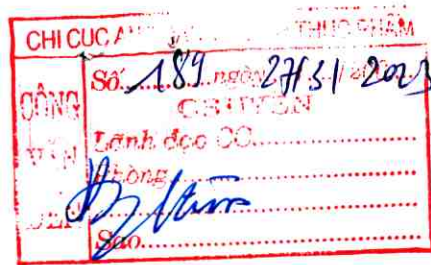 CHI CỤC AN THỰC PHẨM
CÔNG VĂN ĐẾN
Số 189 ngày 27/3/2023
CHUYỂN
Lãnh đạo CC
Phòng
Sao